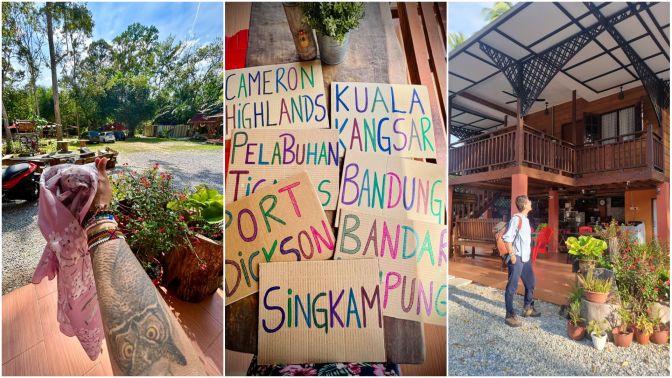 CAMERON
HiGHLANDS
KUALA
KANGSAR
PELABUHAN
BANDUNG
PORT
DICKSON
BANDAR
SiNGKAM